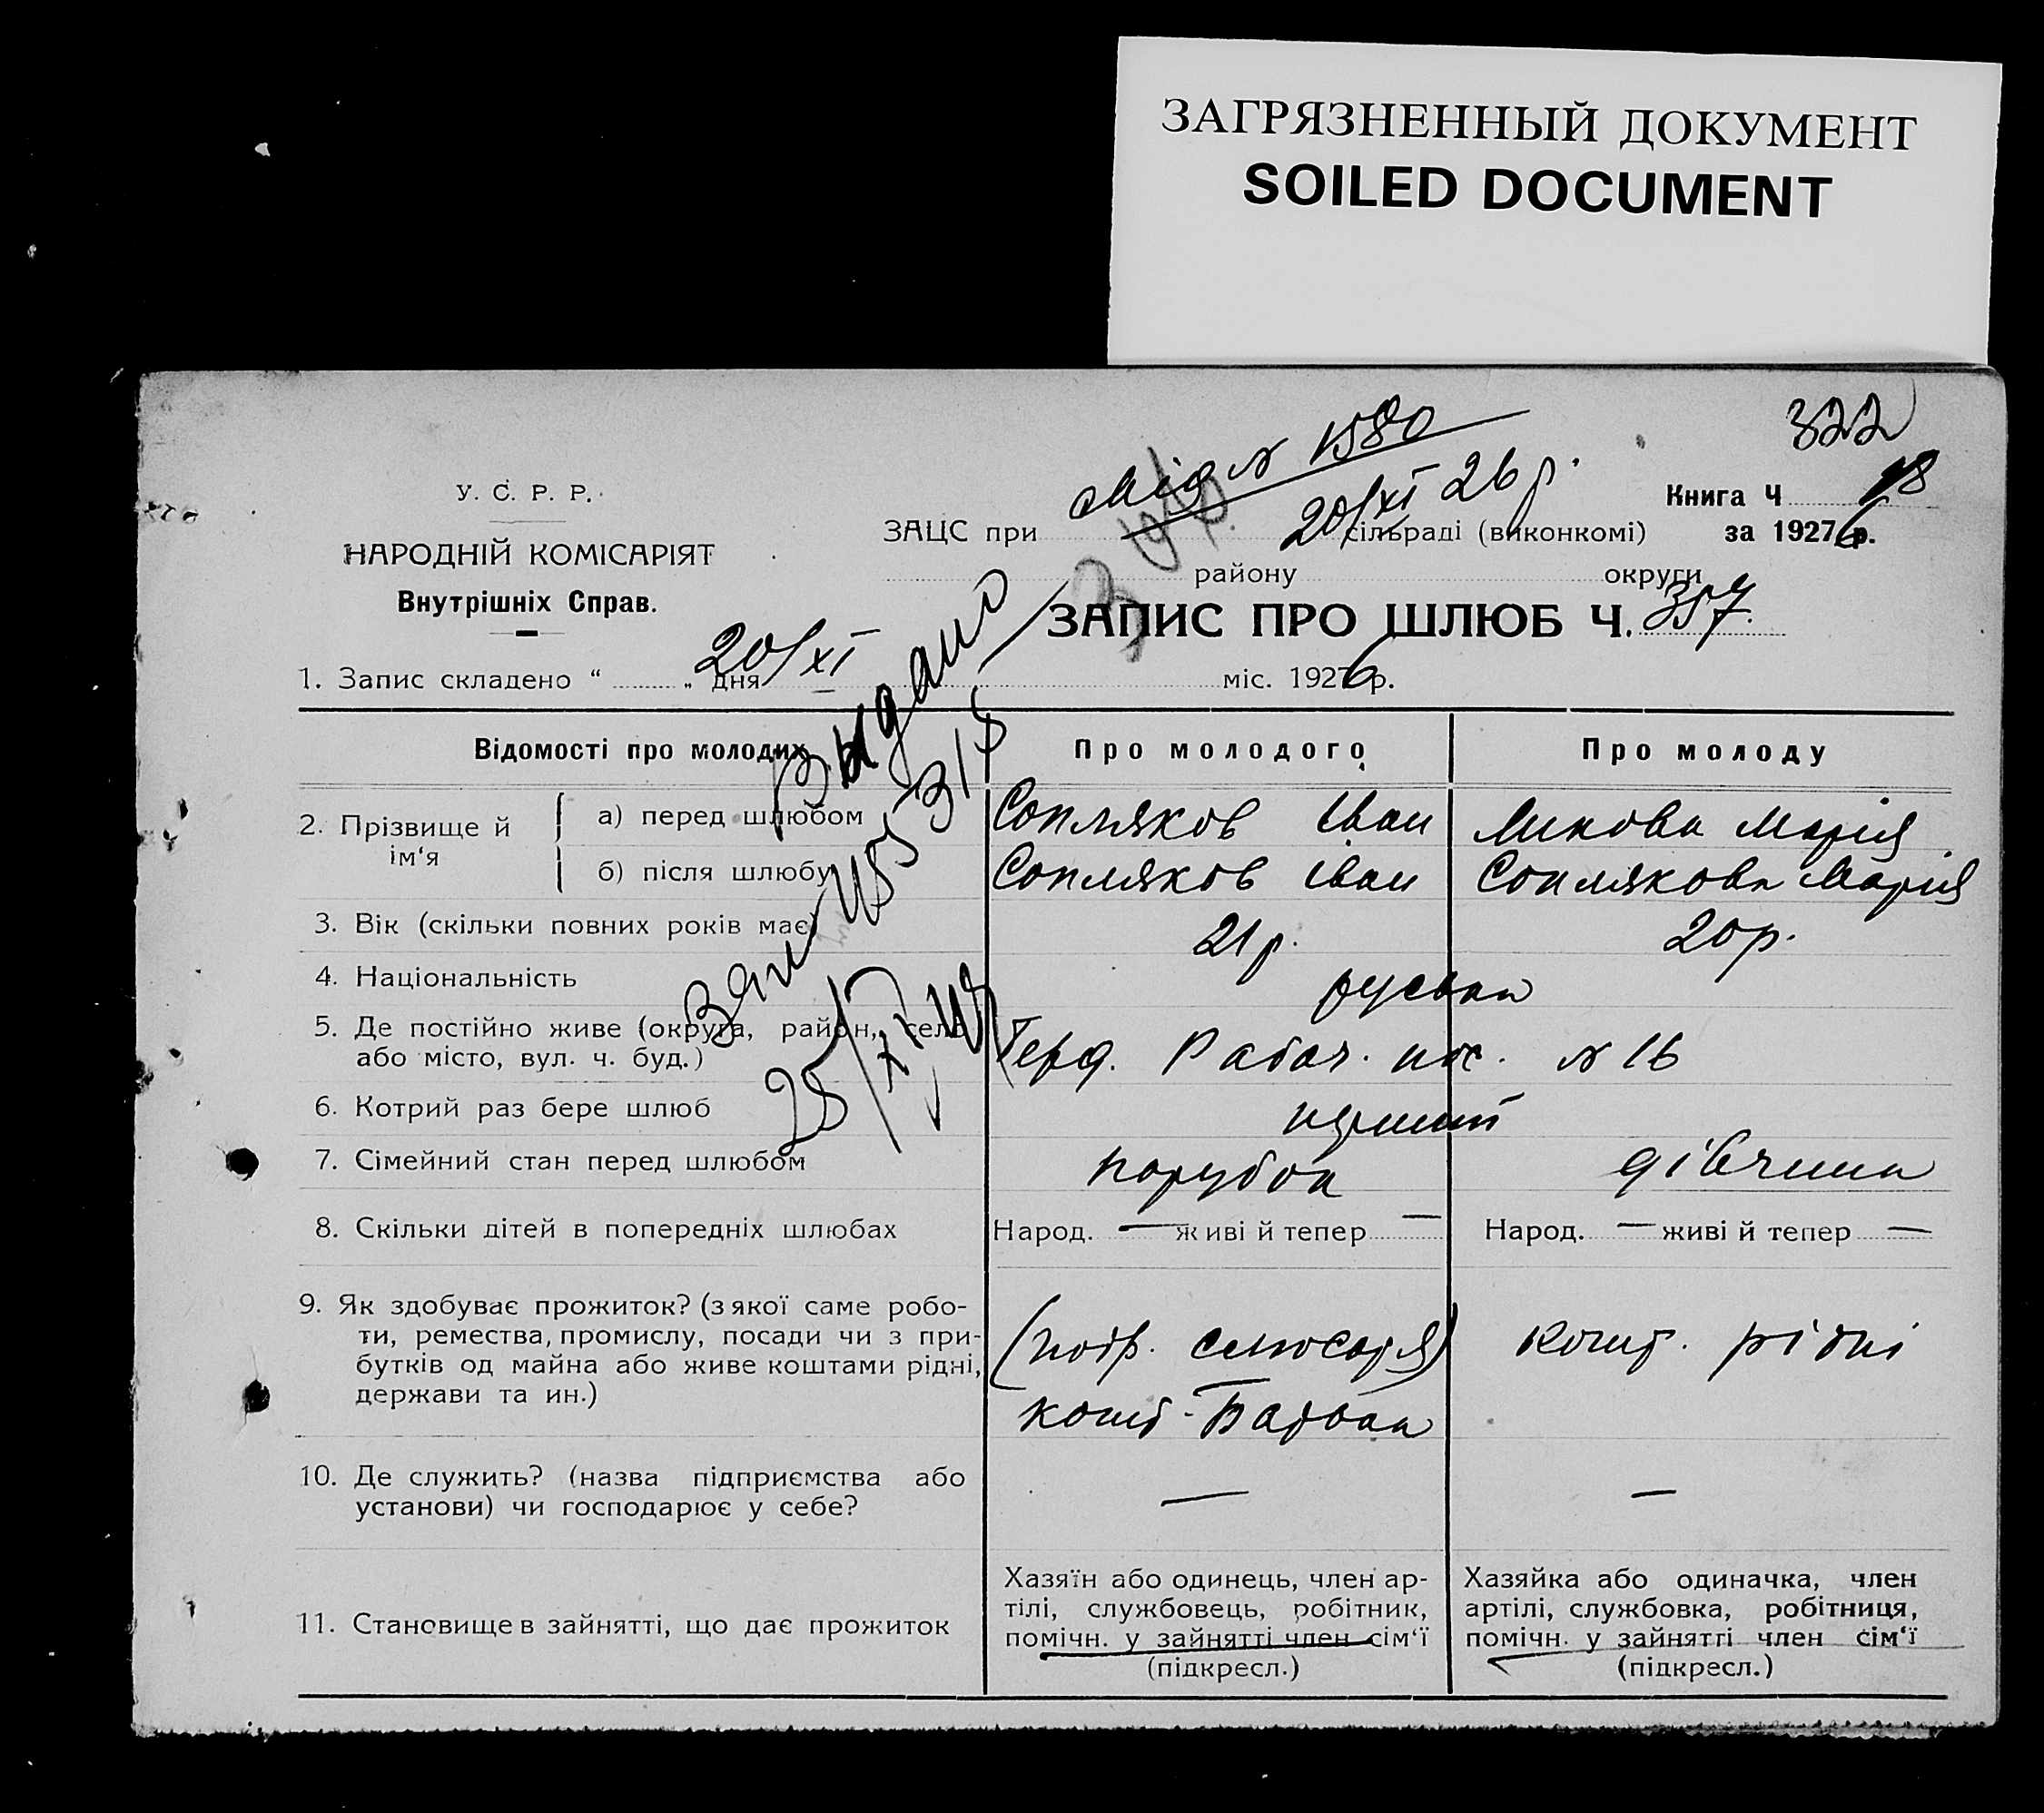 ЗАГРЯЗНЕННЫЙ ДОКУМЕНТ
SOILED DOCUMENT
322
У. С. Р. Р.
НАРОДНІЙ КОМІСАРІЯТ
Внутрішніх Справ.
№ 1580
20/XI 26 р.
Книга Ч 18
ЗАЦС при сільраді (виконкомі) за 1926 р.
району округи
ЗАПИС ПРО ШЛЮБ Ч. 357.
1. Запис складено “ „ дня 20/XI міс. 1926 р.
Выдано
25/XI
Відомості про молодих
Про молодого
Про молоду
2. Прізвище й ім‘я
а) перед шлюбом
Сопляков Іван
Марія
б) після шлюбу
Сопляков Іван
Соплякова Марія
3. Вік (скільки повних років має)
21 р.
20 р.
4. Національність
руська
5. Де постійно живе (округа, район, село
або місто, вул. ч. буд.)
Рабоч. № 16
6. Котрий раз бере шлюб
перший
7. Сімейний стан перед шлюбом
парубок
дівчина
8. Скільки дітей в попередніх шлюбах
Народ. — живі й тепер —
Народ. — живі й тепер —
9. Як здобуває прожиток? (з якої саме робо-
ти, ремества, промислу, посади чи з при-
бутків од майна або живе коштами рідні,
держави та ин.)
слюсаря)
кошт. Батька
кошт. рідні
10. Де служить? (назва підприємства або
установи) чи господарює у себе?
—
—
11. Становище в зайнятті, що дає прожиток
Хазяїн або одинець, член ар-
тілі, службовець, робітник,
помічн. у зайнятті член сім‘ї
(підкресл.)
Хазяйка або одиначка, член
артілі, службовка, робітниця,
помічн. у зайнятті член сім‘ї
(підкресл.)